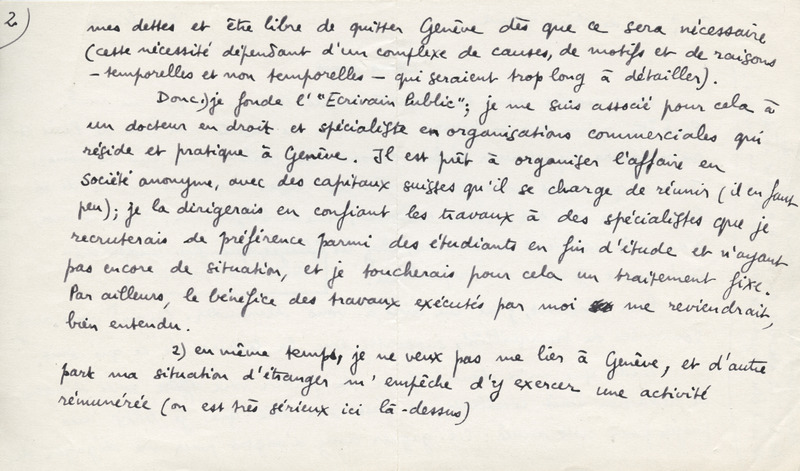 2)
mes dettes et être libre de quitter Genève dès que ce sera nécessaire
(cette nécessité dépendant d'un complexe de causes, de motifs et de raisons
– temporelles et non temporelles – qui seraient trop long à détailler).
Donc,) je fonde l'"Ecrivain Public"; je me suis associé pour cela à
un docteur en droit et spécialiste en organisations commerciales qui
réside et pratique à Genève. Il est prêt à organiser l'affaire en
Société anonyme, avec des capitaux suisses qu'il se charge de réunir (il en faut
peu); je la dirigerais en confiant les travaux à des spécialistes que je
recruterais de préférence parmi des étudiants en fin d'étude et n'ayant
pas encore de situation, et je toucherais pour cela un traitement fixe.
Par ailleurs, le bénéfice des travaux exécutés par moi me reviendrait,
bien entendu.
2) en même temps, je ne veux pas me lier à Genève, et d'autre
part ma situation d'étranger m'empêche d'y exercer une activité
rémunérée (on est très sérieux ici là-dessus)